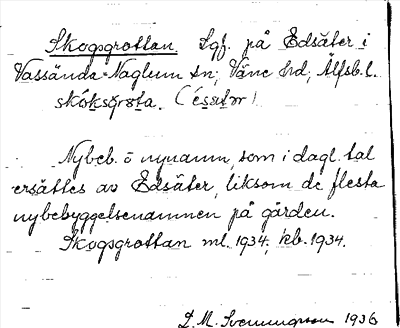 Skogsgrottan. Lgf. på Edsäter i
Vassända-Naglum sn; Väne hd, Älfsb. l.
skóksgrọta. (ẹ́ssẹtər)
Nybeb. o nynamn, som i dagl. tal
ersättes av Edsäter, liksom de flesta
nybebyggelsenamnen på gården.
Skogsgrottan ml. 1934; kb. 1934.
D. M. Svenningson 1936